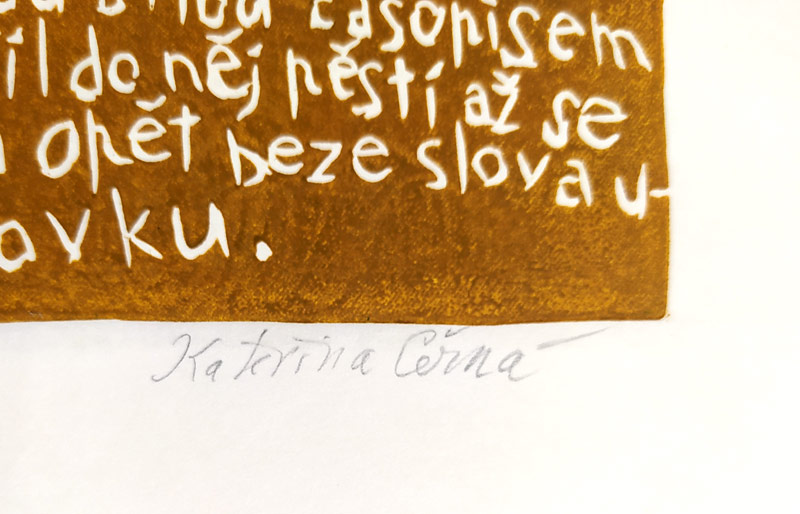 časopisem
do něj pěstí až se
opět beze slova u-
Kateřina Černá